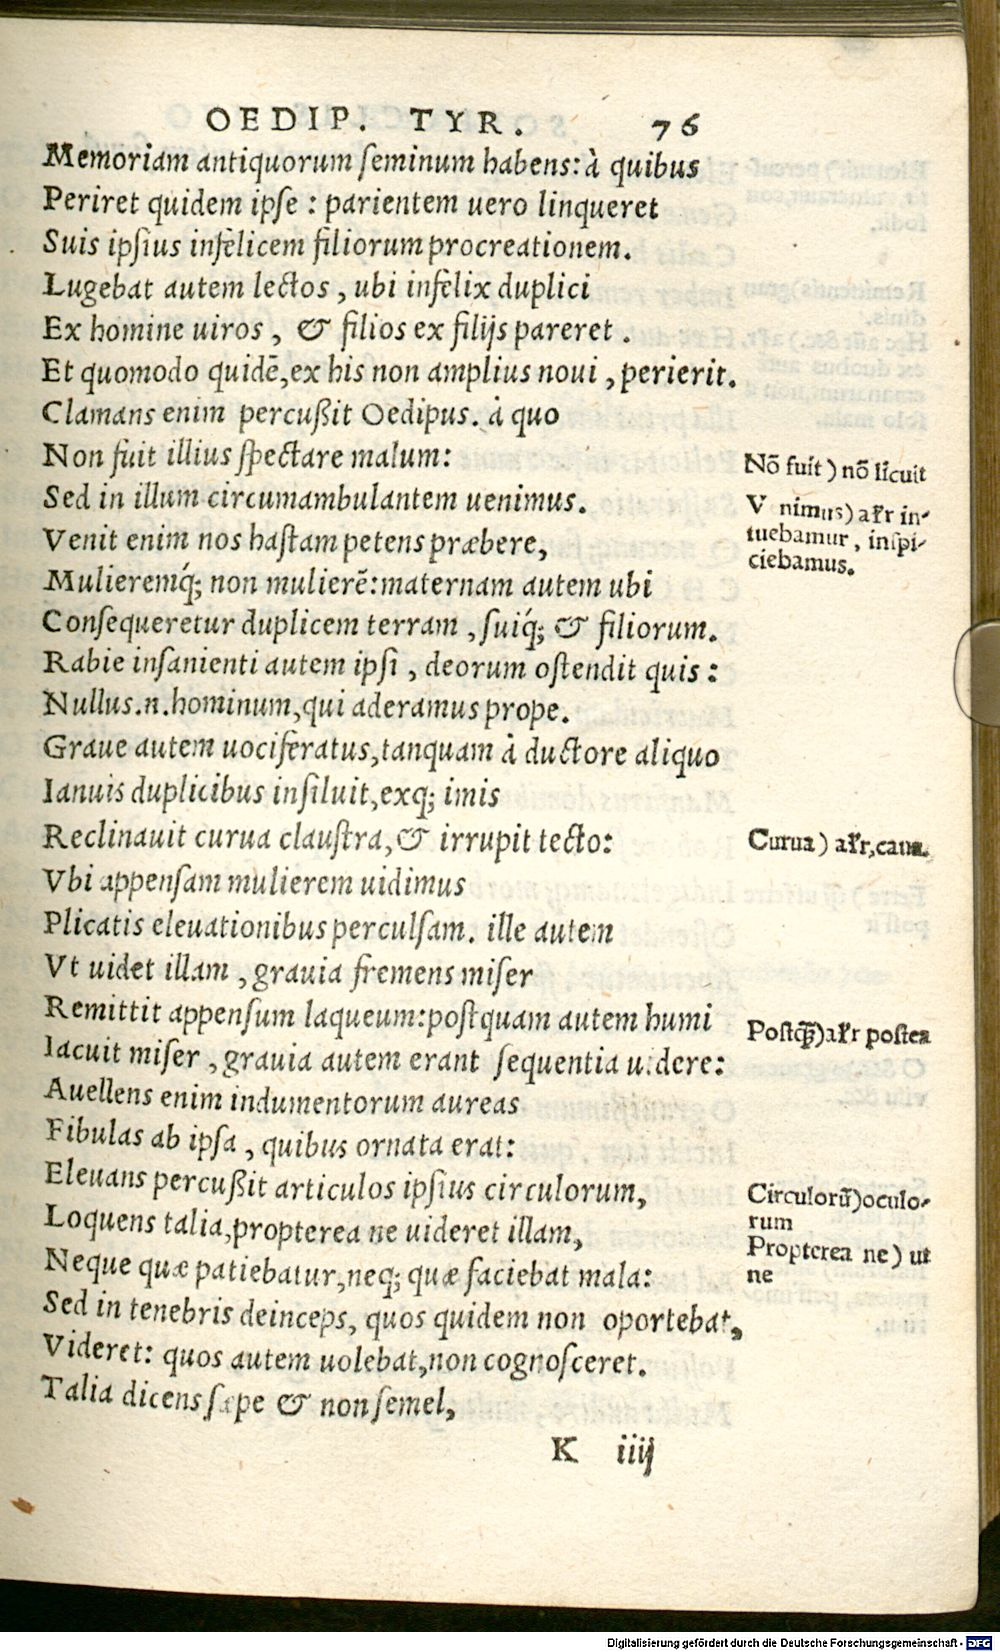 OEDIP. TYR. 76
Memoriam antiquorum seminum habens: à quibus
Periret quidem ipse : parientem uero linqueret
Suis ipsius infelicem filiorum procreationem.
Lugebat autem lectos , ubi infelix duplici
Ex homine uiros , & filios ex filijs pareret .
Et quomodo quidē, ex his non amplius noui , perierit.
Clamans enim percußit Oedipus. à quo
Non fuit illius spectare malum:
Nō fuit ) nō licuit
Sed in illum circumambulantem uenimus.
V nimus) al'r in-
tuebamur , inspi-
ciebamus.
Venit enim nos hastam petens præbere,
Mulieremq́; non mulierē: maternam autem ubi
Consequeretur duplicem terram , suiq́; & filiorum.
Rabie insanienti autem ipsi , deorum ostendit quis :
Nullus .n. hominum, qui aderamus prope.
Graue autem uociferatus, tanquam à ductore aliquo
Ianuis duplicibus insiluit, exq; imis
Reclinauit curua claustra, & irrupit tecto:
Curua ) al'r, caua.
Vbi appensam mulierem uidimus
Plicatis eleuationibus perculsam. ille autem
Vt uidet illam , grauia fremens miser
Remittit appensum laqueum: postquam autem humi
Postq̃)al'r postea
Iacuit miser , grauia autem erant sequentia u dere:
Auellens enim indumentorum aureas
Fibulas ab ipsa , quibus ornata erat:
Eleuans percußit articulos ipsius circulorum,
Circulorū)oculo-
rum
Loquens talia, propterea ne uideret illam,
Propterea ne ) ut
ne
Neque quæ patiebatur, neq; quæ faciebat mala:
Sed in tenebris deinceps, quos quidem non oportebat,
Videret: quos autem uolebat, non cognosceret.
Talia dicens sæpe & non semel,
K iiij
Digitalisierung gefördert durch die Deutsche Forschungsgemeinschaft - DFG